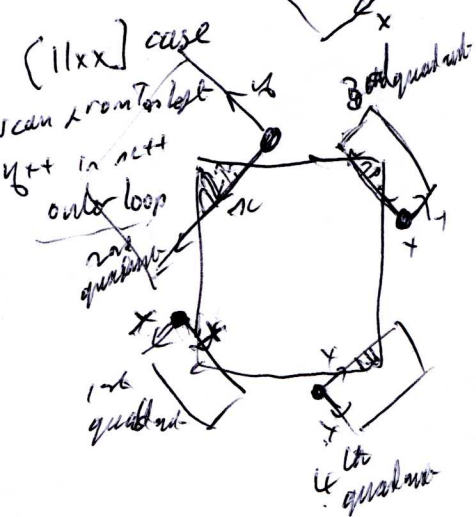 x
[11xx] case
scan from To left
y++ in x++
outer loop
x
3rd quadrant
2nd
quadrant
x
x
x
1st
quadrant
x
x
4th
quadrant